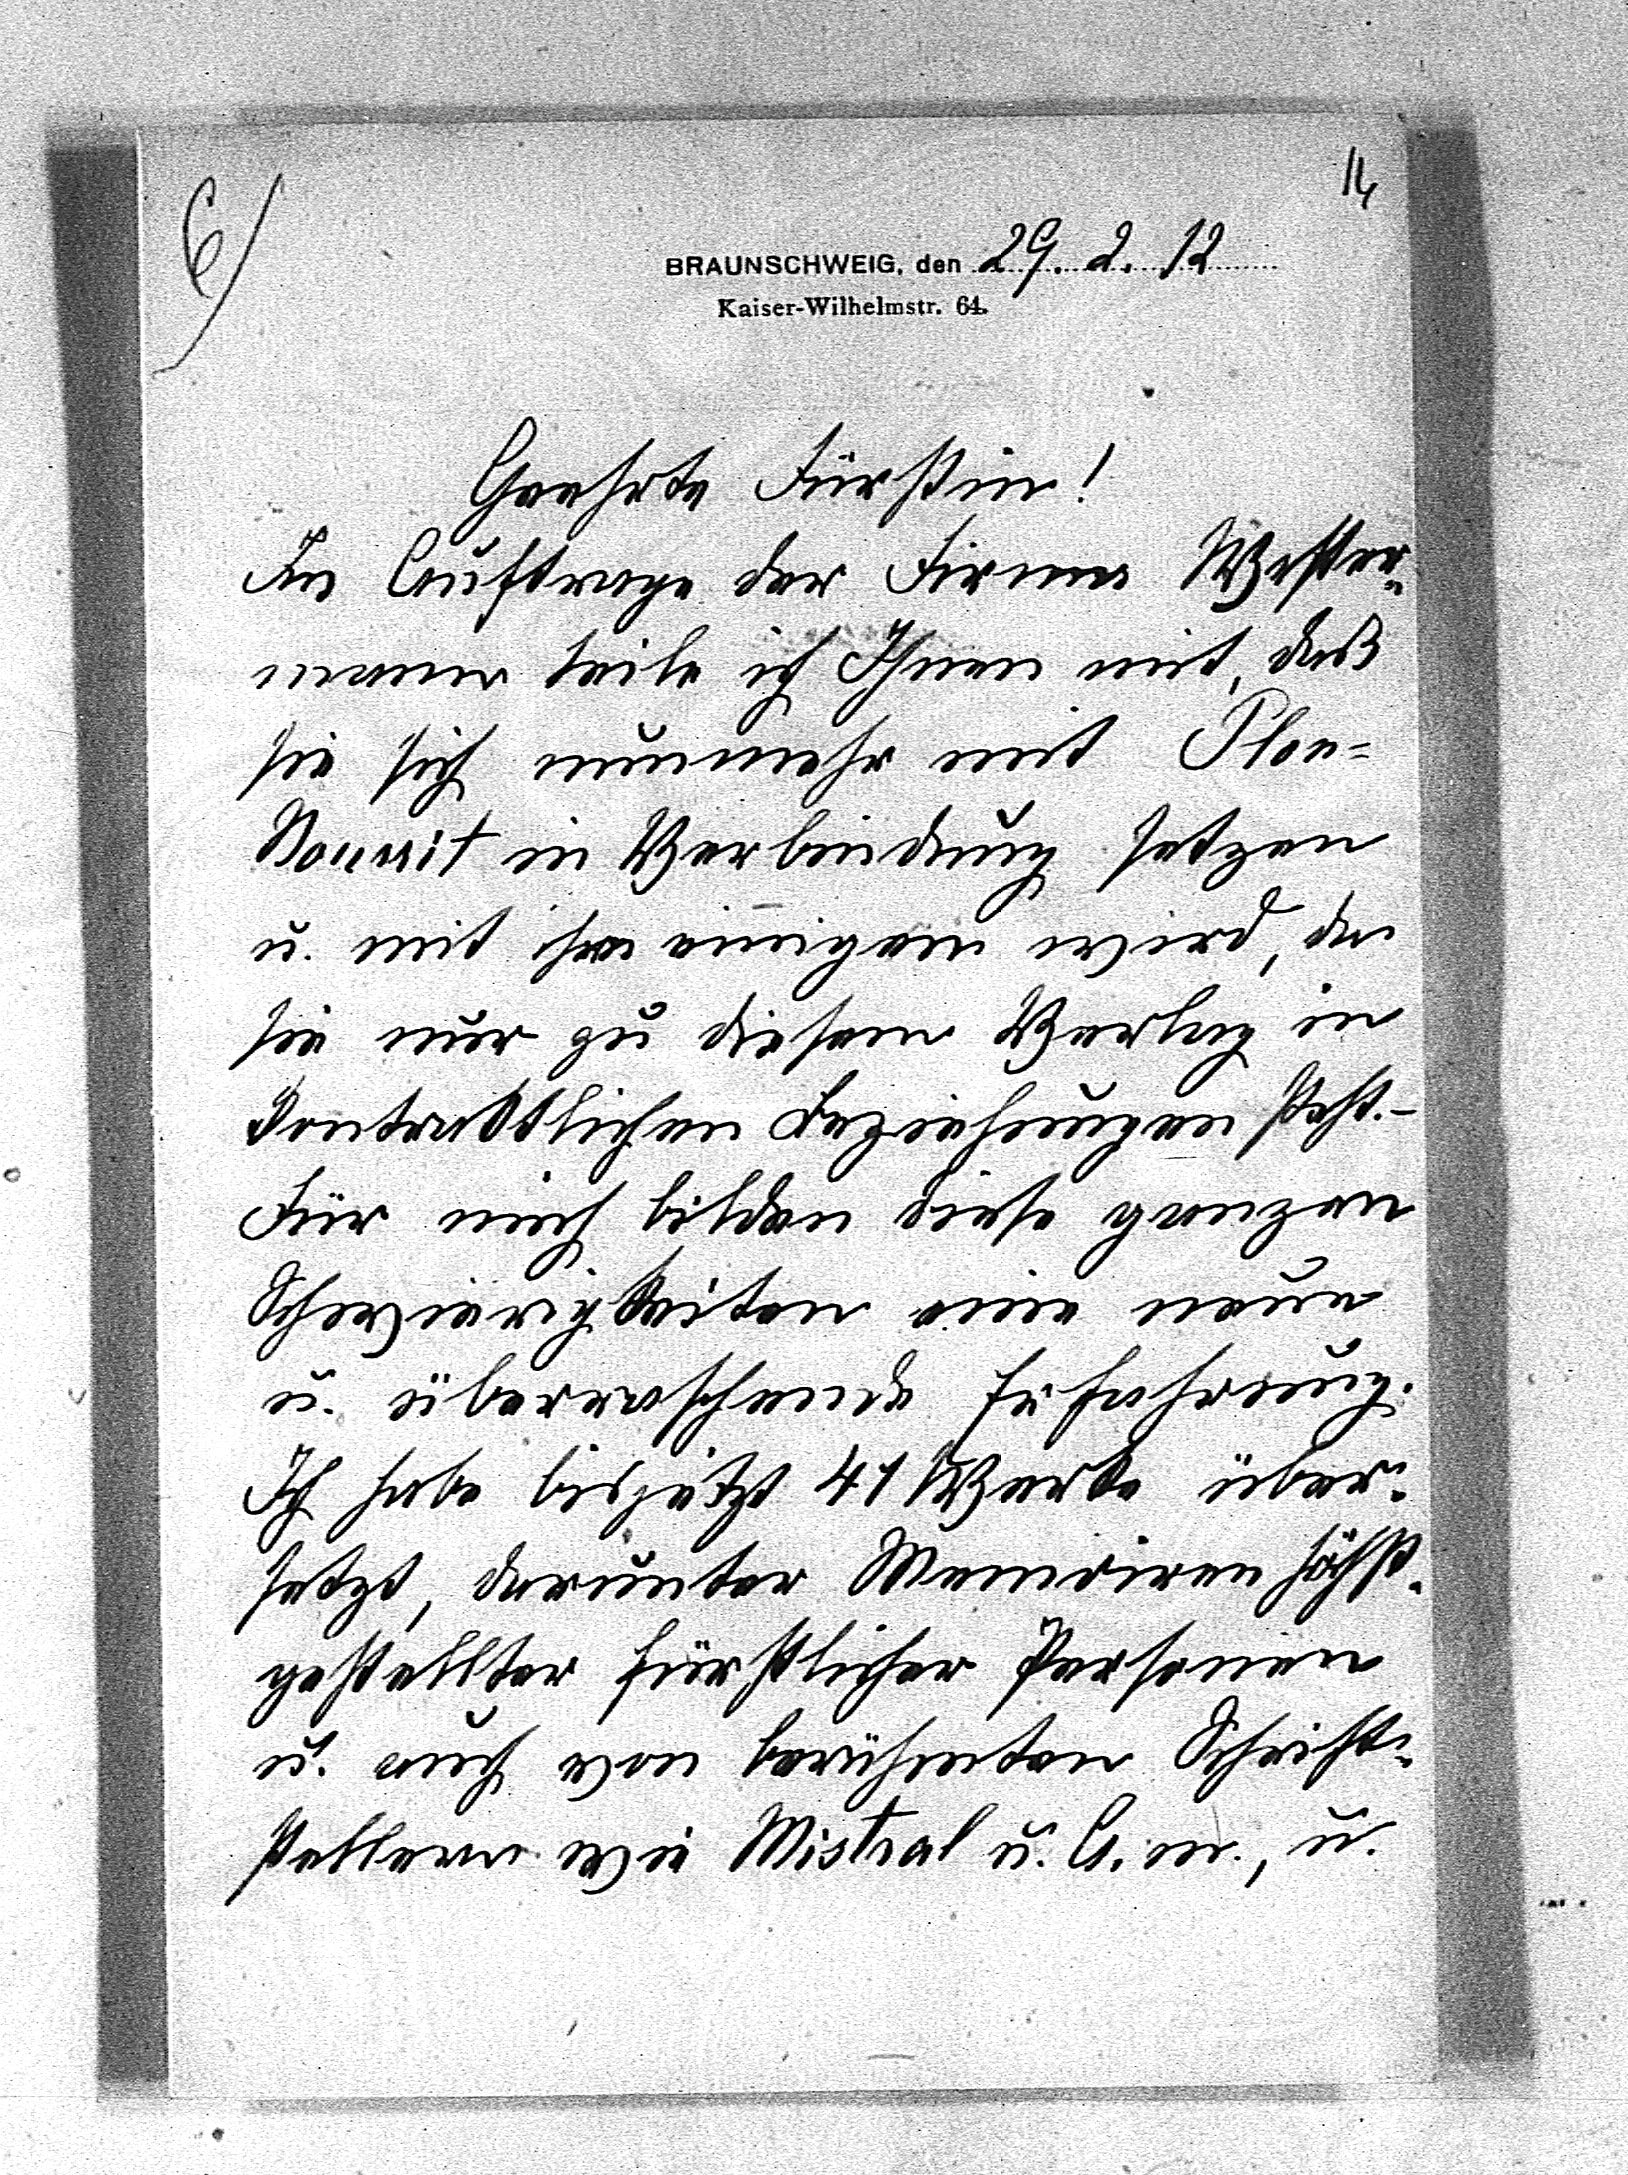 6)
14
BRAUNSCHWEIG, den 29. 2. 12
Kaiser-Wilhelmstr. 64.
Geehrte Fürstin!
Im Auftrage der Firma Wester-
mann teile ich Ihnen mit, daß
sie sich nunmehr mit Plon-
Nourrit in Verbindung setzen
u. mit ihm einigen wird, da
sie nur zu diesem Verlag in
kontraktlichen Beziehungen steht. –
Für mich bilden diese ganzen
Schwierigkeiten eine neue
u. überraschende Erfahrung.
Ich habe bis jetzt 41 Werke über-
setzt, darunter Memoiren höchst-
gestellter fürstlicher Personen
u. auch von berühmten Schrift-
stellern wie Mistral u. A. m., u.